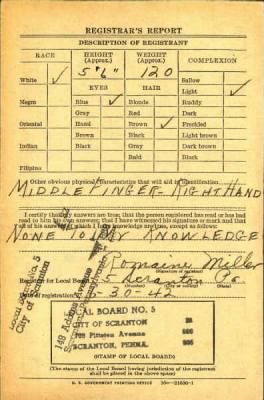 REGISTRAR'S REPORT
DESCRIPTION OF REGISTRANT
RACE HEIGHT (Approx.) WEIGHT (Approx.) COMPLEXION
5' 6" 120
White ✓ Sallow
EYES HAIR Light ✓
Negro Blue ✓ Blonde Ruddy
Gray Red Dark
Oriental Hazel Brown ✓ Freckled
Brown Black Light brown
Indian Black Gray Dark brown
Bald Black
Filipino
Other obvious physical characteristics that will aid in identification
MIDDLE FINGER - RIGHT HAND
I certify that my answers are true; that the person registered has read or has had
read to him his own answers; that I have witnessed his signature or mark and that
all of his answers of which I have knowledge are true, except as follows:
NONE TO MY KNOWLEDGE
Romaine Miller
(Signature of registrar)
Registrar for Local Board 5 Scranton
Date of registration 6-30-42
Local Board No. 5
City of Scranton
149 Adams Avenue
AL BOARD NO. 5
CITY OF SCRANTON
SCRANTON, PENNA.
(STAMP OF LOCAL BOARD)
(The stamp of the Local Board having jurisdiction of the registrant
shall be placed in the above space)
U. S. GOVERNMENT PRINTING OFFICE 16—21630-1